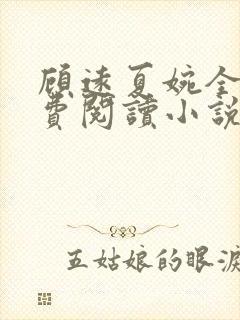 顾远夏婉全
费閱讀小說
五姑娘的眼淚